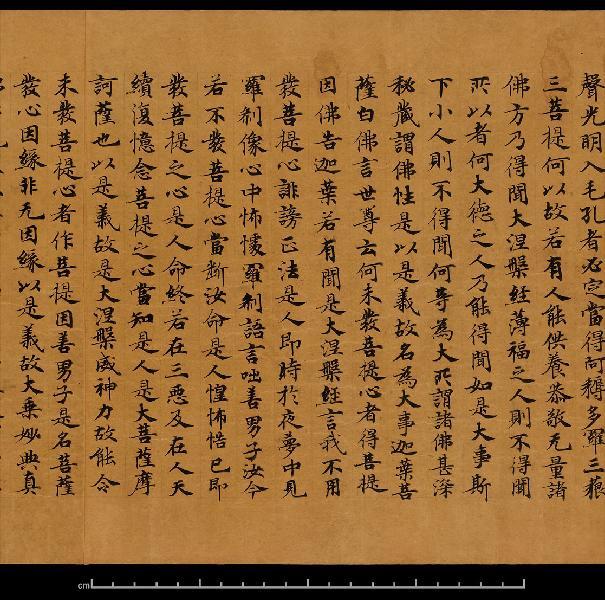 聲光明入毛孔者必定當得阿耨多羅三藐
三菩提何以故若有人能供養恭敬无量諸
佛方乃得聞大涅槃經薄福之人則不得聞
所以者何大德之人乃能得聞如是大事斯
下小人則不得聞何等為大所謂諸佛甚深
秘藏謂佛性是以是義故名為大事迦葉菩
薩白佛言世尊云何未發菩提心者得菩提
因佛告迦葉若有聞是大涅槃經言我不用
發菩提心誹謗正法是人即時於夜夢中見
羅剎像心中怖懅羅剎語言咄善男子汝今
若不發菩提心當斷汝命是人惶怖悟已即
發菩提之心是人命終若在三惡及在人天
續復憶念菩提之心當知是人是大菩薩摩
訶薩也以是義故是大涅槃威神力故能令
未發菩提心者作菩提因善男子是名菩薩
發心因緣非无因緣以是義故大乘妙典真